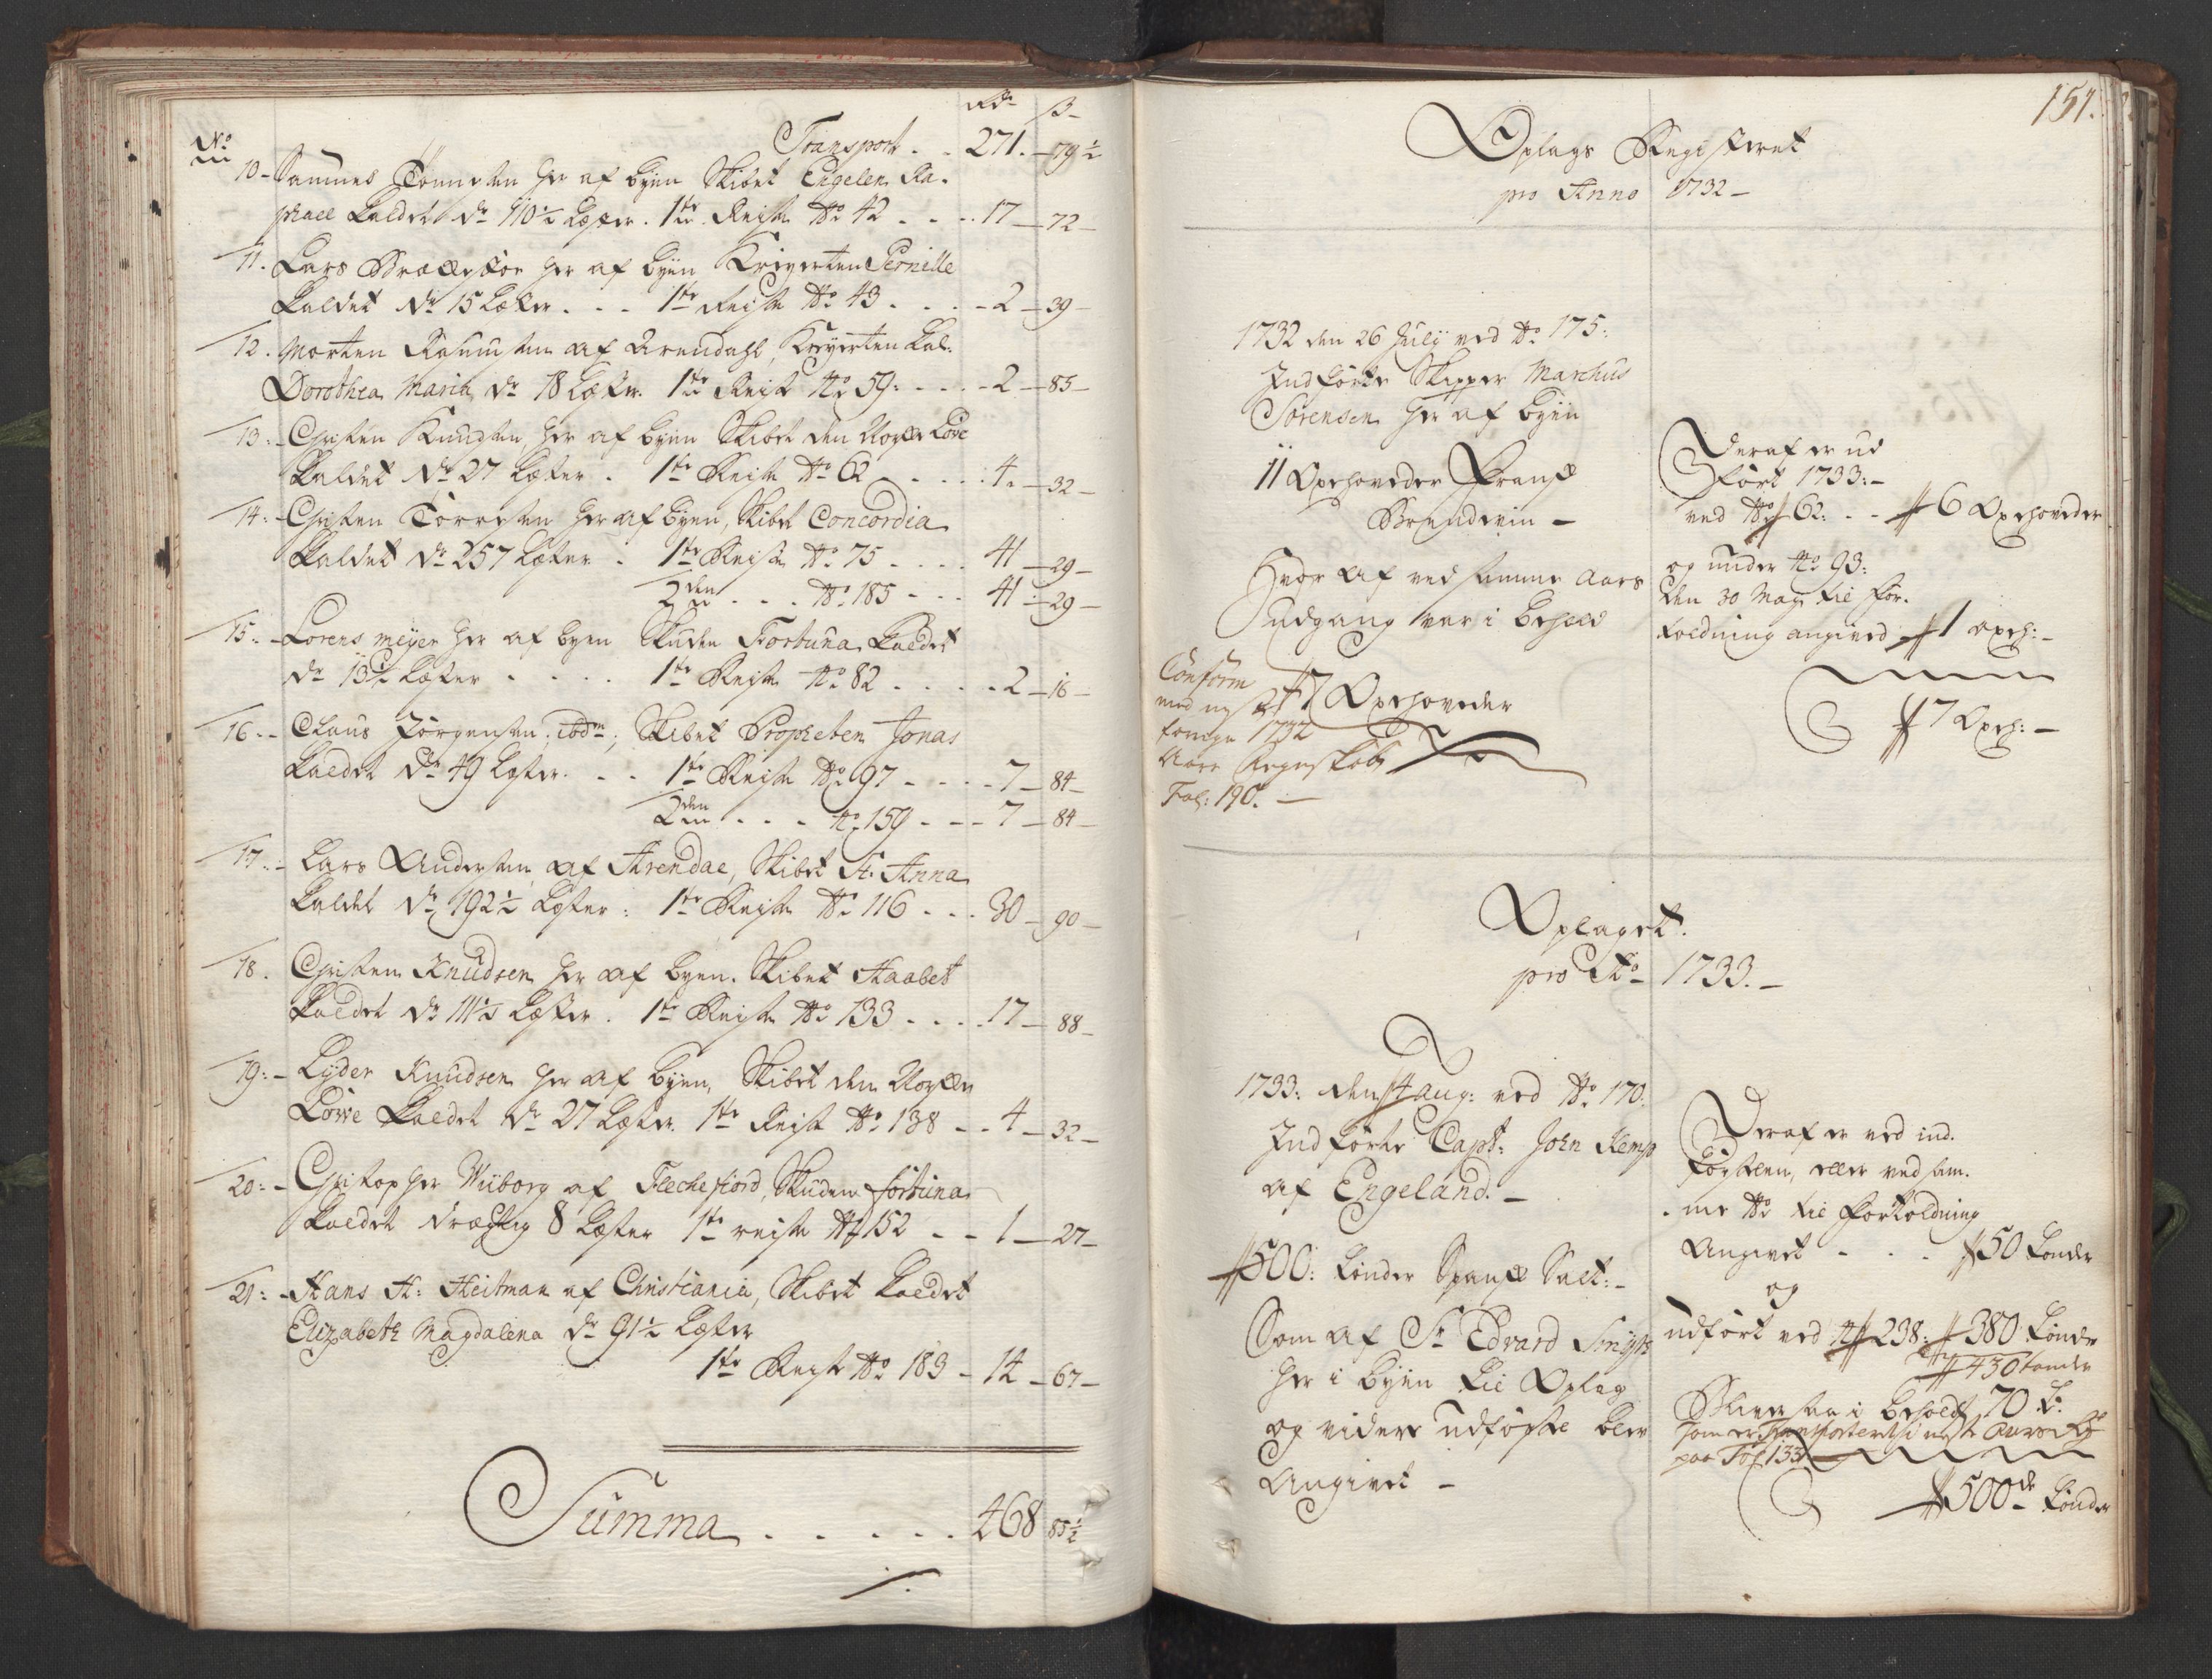 Rdr ß
No Transport . . 271. 79½
10 - Sammes Tønnesen her af byen Skibet Engelen Ra-
phael kaldet dr 110½ Læster. 1te Reise No 42 . . . 17 - 72 -
11. Lars Brekkestøe her af byen Kreyerten Pernille
kaldet dr 15 Læster . . . 1te Reise No 43 . . . . 2 - 39 -
12. Morten Rasmusen af Arendahl, Kreyerten kal:
Dorothea Maria, dr 18 Læster. 1te Reise No 59: . . . . 2 - 85 -
13: - Christen Knudsen, her af byen Skibet den Norske Løve
kaldet dr 27 Læster . 1te Reise No 62 . . . . 4. - 32 -
14: - Christen Torresen her af byen, Skibet Concordia
kaldet dr 257 Læster . 1te Reise No 75 . . . . 41 - 29 -
2den . . . No 185 . . . 41 - 29 -
15: - Lorens Meyer her af byen Skuden Fortuna kaldet
dr 13½ Læster . . . . . 1te Reise No 82 . . . . . 2 - 16 -
16: - Claus Jørgensen, ibdm; Skibet Propheten Jonas
kaldet dr 49 Læster . . . 1te Reise No 97 . . . . 7 - 84 -
2den . . . No 159 . . . 7 - 84 -
17: - Lars Andersen af Arendal, Skibet St. Anna
kaldet dr 192½ Læster: 1te Reise No 116 . . . 30 - 90 -
18. Christen Knudsen her af byen. Skibet Haabet
kaldet dr 111½ Læster . 1te Reise No 133 . . . . 17 - 88 -
19: - Lyder Knudsen her af byen, Skibet den Norske
Løwe kaldet dr 27 Læster. 1te Reise No 138 - - 4 - 32 -
20: - Christopher Wiborg af Flechefiord, Skuden fortuna
kaldet drægtig 8 Læster 1te reise No 152 - - 1 - 27 -
21: - Hans H: Heitman af Christiania, Skibet kaldet
Elizabeth Magdalena dr 91½ Læster
1te Reise No 183 - 14 - 67 -
Summa . . . . . . 468 85½
151.
Oplags Registeret
pro Anno 1732 -
1732 den 26 July ved No 175:
Indførte Skipper Marchus
Sørensen her af byen
11 Oxehoveder Fransk
Brendevin -
Hvor af ved samme Aars
Udgang var i behold
7 Oxehoveder
Conform
med
1732
Aars Regnskab
Fol: 190. -
Deraf er ud
ført 1733: -
ved No 62: . . 6 Oxehoveder
og under No 93:
den 30 May til for-
toldning angived 1 oxeh: -
7 Oxeh: -
Oplaget.
pro Ao - 1733. -
1733: den 14 aug: ved No 170.
Indførte Capt: John Kemp
af Engeland. -
500: tønder Spansk Salt: -
Som af Sr Edvard Smyth
her i byen til Oplag
og videre udførsel blev
Angivet -
Deraf er ved ind-
førselen, eller ved sam-
me No til fortoldning
Angivet - . . 50 tønder
og
udført ved No 238: 380 tønder
430 tønder
Bliver saa i behold 70 t:
som er transporteret i neste Aars
paa Fol 133
500de tønder